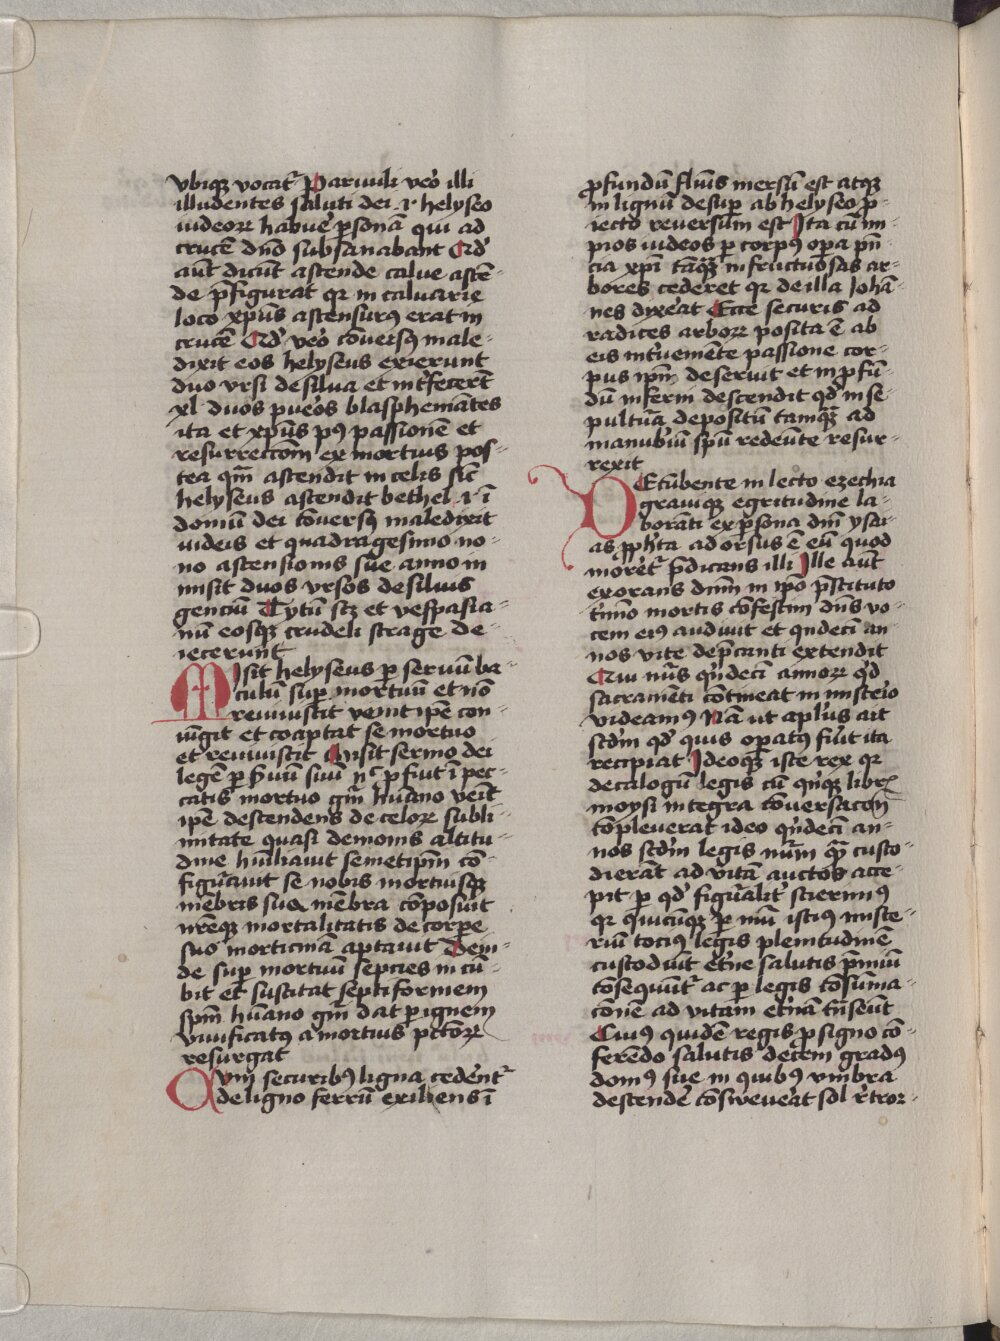 vbiqꝫ vocat᷑ Paruuli ṽo illi
illudentes saluti dei .i. helyseo
iudeoꝝ habue᷑ ꝑsonā qui ad
crucē dnd̄ subsanabant Qd̓
aūt dicūt astende calue asten-
de p̄figurat qꝛ in caluarie
loco xp̄us astensurꝰ erat in
crucē Qd̓ ṽo cōuersꝰ male-
dixit eos helyseus exierunt
duo vrsi de silua et int̓fecer̄t
xl duos pueros blasphemātes
ita et xp̄us pꝰ passionē et
resurrectōm ex mortuis pos-
tea qm̄ astendit in celis sic̄
helyseus astendit bethel .i. ī
domū dei cōuersꝰ maledixit
iudeis et quadragesimo no-
no astensionis sue anno in
misit duos vrsos de siluis
genciū Tytū scꝫ et vespasia-
nū eosqꝫ crudeli strage de-
iecerunt
Misit helyseus ꝑ seruū ba-
culū suꝑ mortuū et nō
reuiuistit venit ip̄e con-
iūgit et coaptat se mortuo
et reuiuistit Misit sermo dei
legē ꝑ s̓uū suū nc̄ ꝓfuit ī pec-
catis mortuo gn̄i hūano veīt
ip̄e descendens de celoꝝ subli-
mitate quasi demonis altitu-
dine hūiliauit semetip̄m cō-
figurauit se nobis mortuisqꝫ
mēbris sua mēbra cōposuit
nr̄eqꝫ mortalitatis de corpe
suo morticinā aptauit Dein-
de suꝑ mortuū sepcies incū-
bit et suscitat septiformem
spm̄ hūano gn̄i dat ꝑ ignem
viuificatꝰ a mortuis pctōꝝ
resurgat
Qum securibꝰ ligna cedent᷑
de ligno ferrū exiliens ī
ꝓfundū fluīs mersū est atqꝫ
in lignū desuꝑ ab helyseo ꝓ-
iecto reversum est Ita cū im-
pios iudeos ꝑ corpꝰ opa pn̄-
cia xp̄i tāqꝫ infructuosas ar-
bores cederet qꝛ de illa Johā-
nes dixerat Ecce securis ad
radices arboꝝ posita ē ab
eis int̓uemēte passione cor-
pus ip̄m deseruit et in ꝓfū-
dū inferni descendit qd̓ in se-
pultura depositū tamqꝫ ad
manubriū spū redeūte resur-
rexit
DEtūbente in lecto ezechia
grauiqꝫ egritudine la-
borāti ex ꝑsona dn̄i ysai-
as ꝓph̓ta adorsus ē eū quod
moret᷑ p̄dicans illi Ille aūt
exorans dn̄m in ip̄o p̄stituto
t̓mīo mortis cōfestim dn̄s vo-
cem eiꝰ audiuit et qn̄deci an-
nos vite dep̄canti extendit
Cuiꝰ nūs qn̄deci annoꝝ qd̓
sacramēti cōtineat in misterio
videamꝰ Nā ut apl̓us ait
scdm̄ qd̓ quis opatꝰ fuit ita
recipiat Ideoqꝫ iste rex qꝛ
decalogū legis cū qn̄qꝫ libris
moysi integra cōuersacōn
cōpleuerat ideo qn̄deci an-
nos scdm̄ legis nūm̄ quā custo-
dierat ad vitā auctos acce-
pit ꝑ qd̓ figuralit᷑ sciremꝰ
qꝛ quicūqꝫ ꝑ nūm̄ istiꝰ miste-
riū tociꝰ legis plenitudinē
custodiūt et̓ne salutis p̄miū
cōsequūt᷑ ac ꝑ legis cōsuma-
conē ad vitam et̓nā trāseūt
Cuiꝰ quidē regis ꝑ signo cō-
ferēdo salutis decem gradꝰ
domꝰ sue in quibꝰ vmbra
descendēs cōsueuerat sol ret̓ror-